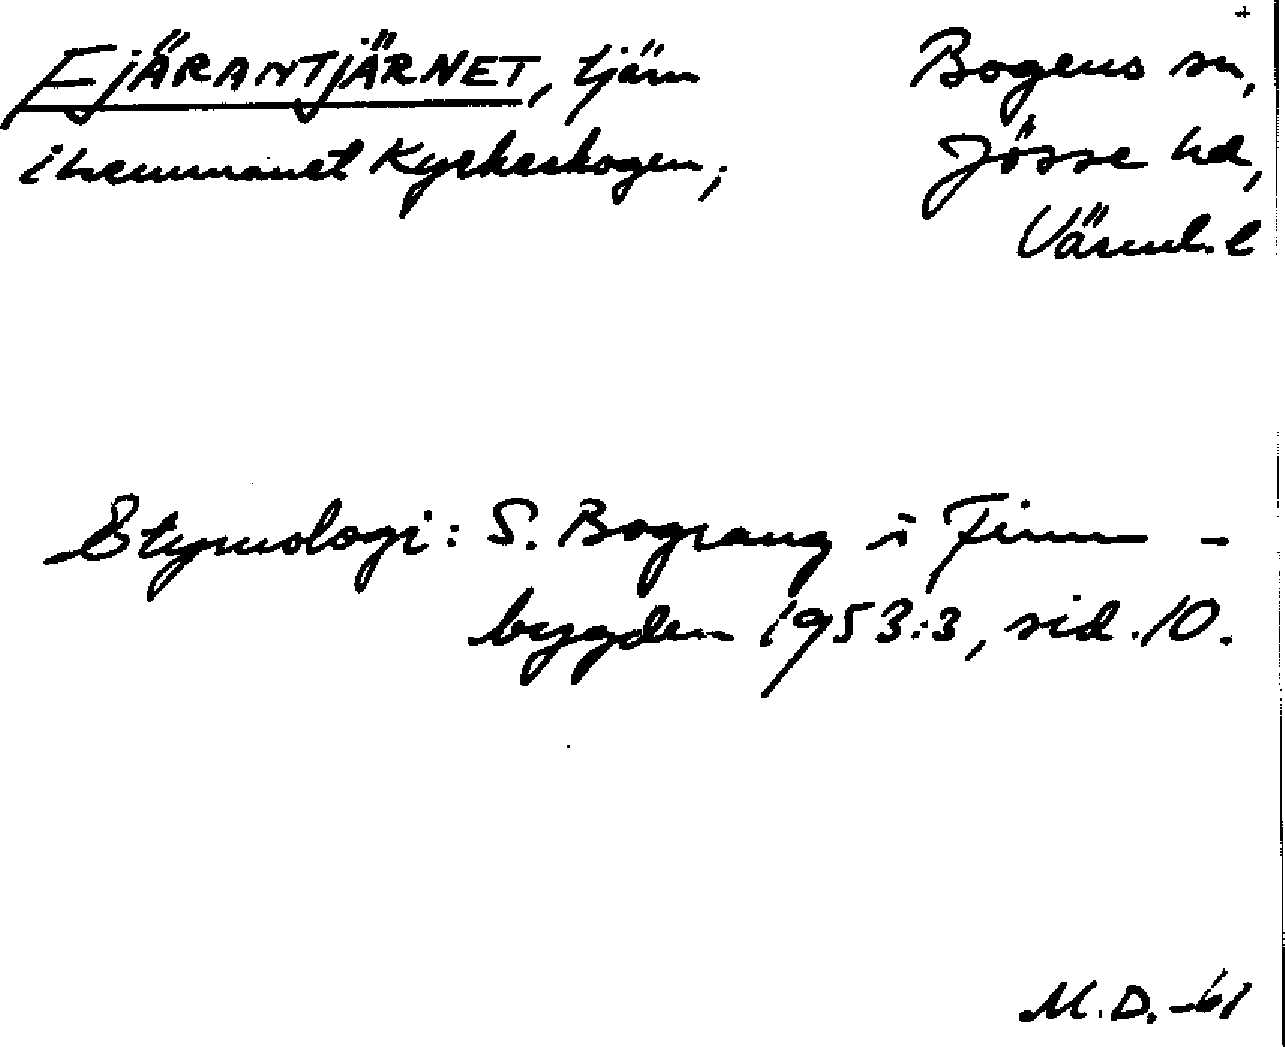 EJÄRANTJÄRNET, tjärn
i hemmanet Kyrkeskogen;
Bogens sn,
Jösse hd,
Värml. l
Etymologi: S. Bograng i Finn-
bygden 1953:3, sid. 10.
M.D. -61